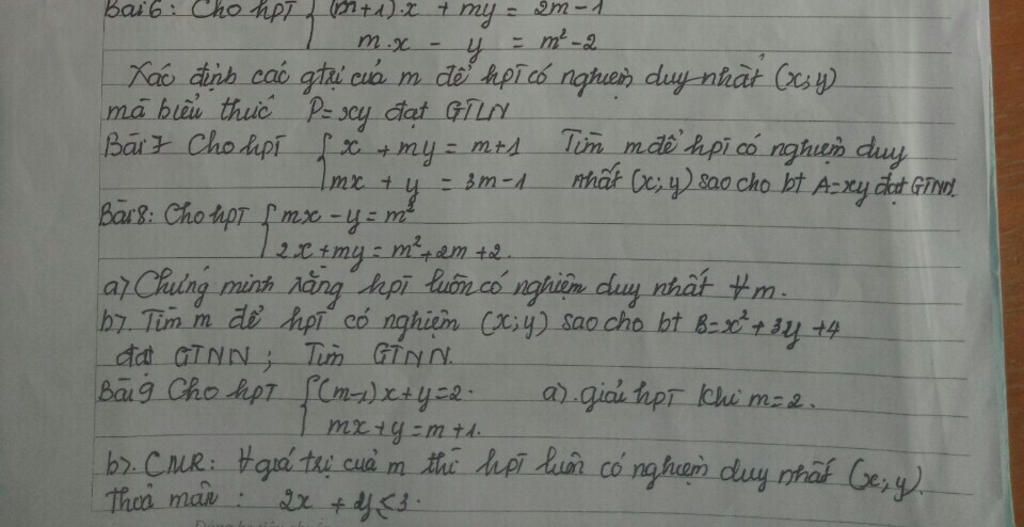 Bài 6: Cho hpt { (m+1).x + my = 2m-1
m.x - y = m²-2
Xác định các gtrị của m để hpt có nghiệm duy nhất (x;y)
mà biểu thức P=xy đạt GTLN
Bài 7 Cho hpt { x + my = m+1 Tìm m để hpt có nghiệm duy
mx + y = 3m-1 nhất (x;y) sao cho bt A=xy đạt GTNN.
Bài 8: Cho hpt { mx - y = m²
2x + my = m²+2m+2.
a) Chứng minh rằng hpt luôn có nghiệm duy nhất ∀m.
b). Tìm m để hpt có nghiệm (x;y) sao cho bt B=x²+3y+4
đạt GTNN; Tìm GTNN.
Bài 9 Cho hpt { (m-1)x+y=2. a). giải hpt khi m=2.
mx+y=m+1.
b). CMR: ∀ giá trị của m thì hpt luôn có nghiệm duy nhất (x;y).
Thoả mãn: 2x + y ≤ 3.